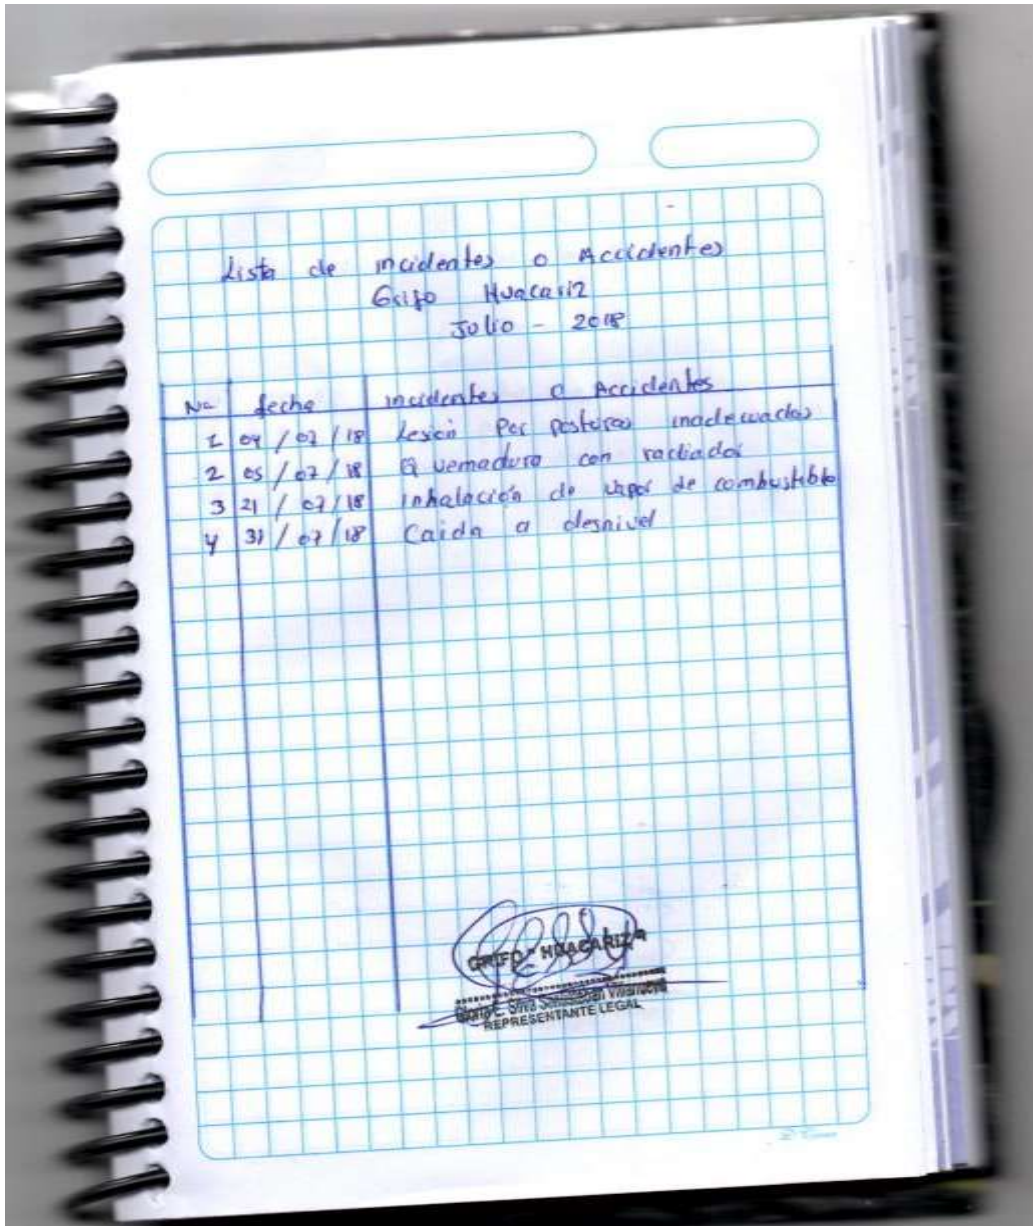 Lista de incidentes o Accidentes
Grifo Huacariz
Julio - 2018
No fecha incidentes o Accidentes
1 04 / 07 / 18 Lesión Por posturas inadecuadas
2 05 / 07 / 18 Quemadura con radiador
3 21 / 07 / 18 inhalación de vapor de combustible
4 31 / 07 / 18 Caida a desnivel
GRIFO "HUACARIZ"
Silva
REPRESENTANTE LEGAL